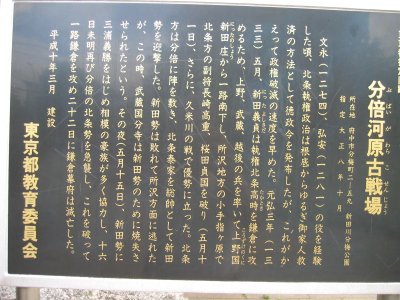 分倍河原古戦場
ぶばいがわらこせんじょう
所在地 府中市分梅町二丁目 新田川分梅公園
指定 大正八年十月
文永(一二七四)、弘安(一二八一)の役を経験
した頃、北条執権政治は根底からゆるぎ御家人救
済の方法として徳政令を発布したが、これがか
えって政権破滅の速度を早めた。元弘三年(一三
三三)五月、新田義貞は執権北条高時を鎌倉に攻
めるため、上野、武蔵、越後の兵を率いて上野国
新田庄から一路南下し、所沢地方の小手指ヶ原で
北条方の副将長崎高重、桜田貞国を破り(五月十
一日)、さらに、久米川の戦で優勢に立った。北条
方は分倍に陣を敷き、北条泰家を総帥として新田
勢を迎撃した。新田勢は敗れて所沢方面に逃れた
が、この時、武蔵国分寺は新田勢のために焼失さ
せられたという。その夜(五月十五日)新田勢に
三浦義勝をはじめ相模の豪族が多く協力し、十六
日未明再び分倍の北条勢を急襲し、これを破って
一路鎌倉を攻め二十二日に鎌倉幕府は滅亡した。
平成十年三月 建設
東京都教育委員会